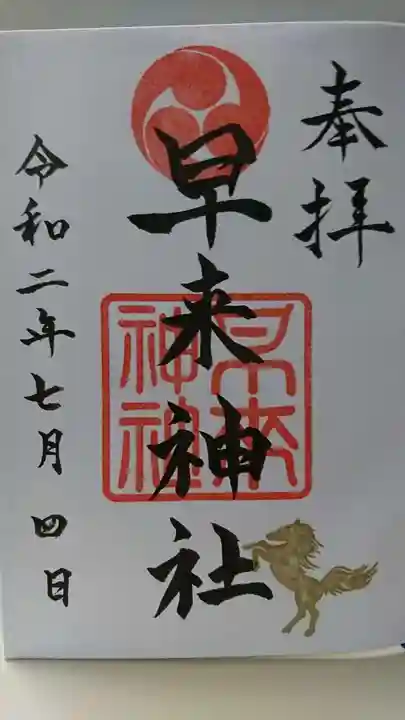 奉拝
早来神社
早来
神社
令和二年七月四日